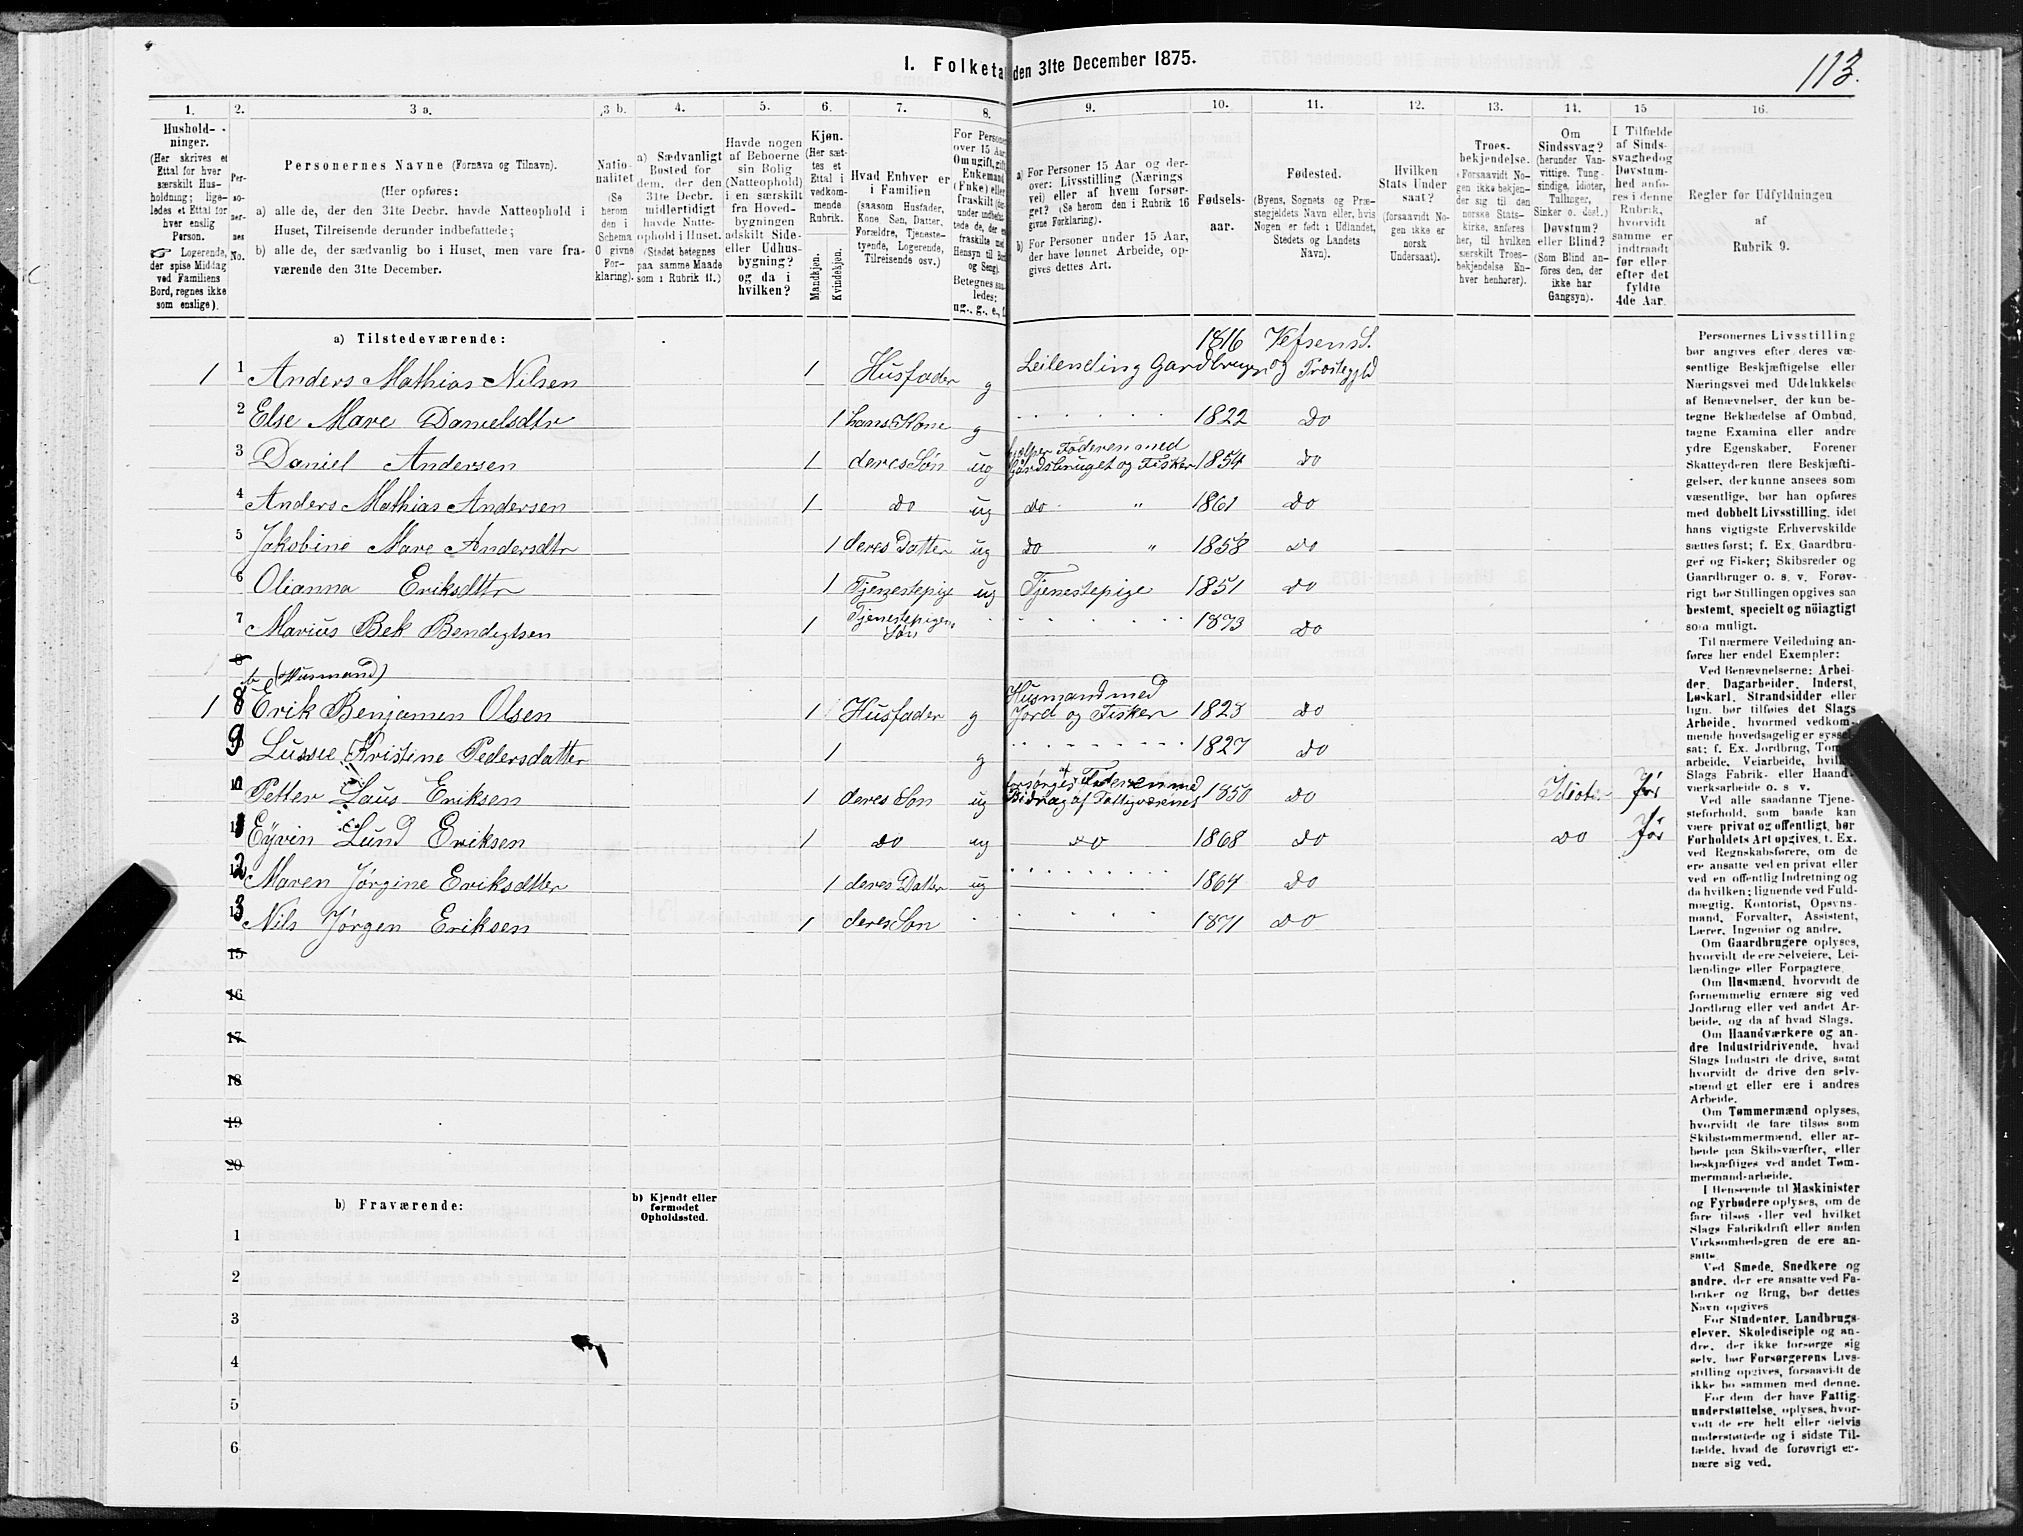 113.
I. Folketa den 31te December 1875.
1. 2. 3 a. 3 b. 4. 5. 6. 7. 8. 9. 10. 11. 12. 13. 14. 15 16.
Hushold-
ninger.
(Her skrives et
Ettal for hver
særskilt Hus-
holdning; lige-
ledes et Ettal for
hver enslig
Person.
☞ Logerende,
der spise Middag
ved Familiens
Bord, regnes ikke
som enslige).
Per-
so-
ner-
nes
No.
Personernes Navne (Fornavn og Tilnavn).
(Her opføres:
a) alle de, der den 31te Decbr. havde Natteophold i
Huset, Tilreisende derunder indbefattede;
b) alle de, der sædvanlig bo i Huset, men vare fra-
værende den 31te December.
Natio-
nalitet
(Se
herom
den i
Schema
O givne
For-
klaring).
a) Sædvanligt
Bosted for
dem, der den
31te Decbr.
midlertidigt
havde Natte-
ophold i Huset.
(Stedet betegnes
paa samme Maade
som i Rubrik 11.)
Havde nogen
af Beboerne
sin Bolig
(Natteophold)
i en særskilt
fra Hoved-
bygningen
adskilt Side-
eller Udhus-
bygning?
og da i
hvilken?
Kjøn.
(Her sæt-
tes et
Ettal i
vedkom-
mende
Rubrik.
Mandkjøn.
Kvindekjøn.
Hvad Enhver er
i Familien
(saasom Husfader,
Kone Søn, Datter,
Forældre, Tjeneste-
tyende, Logerende,
Tilreisende osv.)
For Persone
over 15 Aar
Om ugift, gift
Enkemand
(Enke) eller
fraskilt
ledes:
ug., g., e., f.
a) For Personer 15 Aar og der-
over: Livsstilling (Nærings-
vei) eller af hvem forsør-
get? (Se herom den i Rubrik 16
givne Forklaring).
b) For Personer under 15 Aar,
der have lønnet Arbeide, op-
gives dettes Art.
Fødsels-
aar.
Fødested.
(Byens, Sognets og Præ-
stegjeldets Navn eller, hvis
Nogen er født i Udlandet,
Stedets og Landets
Navn).
Hvilken
Stats Under
saat?
(forsaavidt No-
gen ikke er
norsk
Undersaat).
Troes-
bekjendelse.
(Forsaavidt No-
gen ikke bekjen-
der sig til den
norske Stats-
kirke, anføres
her, til hvilken
særskilt Troes-
bekjendelse En-
hver henhører).
Om
Sindssvag?
(herunder Van-
vittige, Tung-
sindige, Idioter,
Tullinger,
Sinker o. desl.)
Døvstum?
eller Blind?
(Som Blind an-
føres den, der
ikke har
Gangsyn).
I Tilfælde
af Sinds-
svaghed og
Døvstum-
hed anfø-
res i denne
Rubrik,
hvorvidt
samme er
indtraadt
før eller
efter det
fyldte
4de Aar.
Regler før Udfyldningen
af
Rubrik 9.
a) Tilstedeværende:
1 1 Anders Mathias Nilsen 1 Husfader g Leilending Gardbruger 1816 Vefsens S. og Præstegjeld
2 Else Mare Danielsdtr 1 hans Kone g 1822 Do
3 Daniel Andersen 1 deres Søn ug hjelper Faderen med Gårdsbruget og Fisker 1854 Do
4 Anders Mathias Andersen 1 do ug Do " 1861 Do
5 Jakobine Mare Andersdtr 1 deres Datter ug do " 1858 Do
6 Olianna Eriksdtr 1 Tjenestepige ug Tjenestepige 1851 Do
7 Marius Bek Bendigtsen 1 Tjenestepigens Søn 1873 Do
8
b (Husmænd)
1 8 Erik Benjamen Olsen 1 Husfader g Husmand med Jord og Fisker 1823 Do
9 Lussie Kristine Pedersdatter 1 g 1827 Do
Petter Laus Eriksen 1 deres Søn ug forsørges af Faderen med Bidrag af Fattigvæsenet 1850 Do Idiot Før
Eÿvin Lund Eriksen 1 do ug do 1868 Do do Før
12 Maren Jørgine Eriksdtter 1 deres Datter ug 1864 Do
13 Nils Jørgen Eriksen 1 deres Søn 1871 DO
15
16
17
18
19
20
b) Fraværende:
b) Kjendt eller
formodet
Opholdssted.
1
2
3
4
5
6
Personernes Livsstilling
bør angives efter deres væ-
sentlige Beskjæftigelse eller
Næringsvei med Udelukkelse
af Benævnelser, der kun be-
tegne Beklædelse af Ombud,
tagne Examina eller andre
ydre Egenskaber. Forener
Skatteyderen flere Beskjæfti-
gelser, der kunne ansees som
væsentlige, bør han opføres
med dobbelt Livsstilling, idet
hans vigtigste Erhvervskilde
sættes først; f. Ex. Gaardbru-
ger og Fisker; Skibsreder og
Gaardbruger o. s. v. Forøv-
rigt bør Stillingen opgives saa
bestemt, specielt og nøiagtigt
som muligt.
Til nærmere Veiledning an-
føres her endel Exempler:
Ved Benævnelserne: Arbei-
der, Dagarbeider, Inderst,
Løskarl, Strandsidder eller
lign. bør tilføies det Slags
Arbeide, hvormed vedkom-
mende hovedsagelig er syssel-
sat; f. Ex. Jordbrug, Tom
arbeide, Veiarbeide, hvil
Slags Fabrik- eller Haand-
værksarbeide o. s. v.
Ved alle saadanne Tjene-
steforhold, som baade kan
være privat og offentligt, bør
Forholdets Art opgives, f. Ex.
ved Regnskabsførere, om de
ere ansatte ved en privat eller
ved en offentlig Indretning og
da hvilken; lignende ved Fuld-
mægtig, Kontorist, Opsyns-
mand, Forvalter, Assistent,
Lærer, Ingeniør og andre.
Om Gaardbrugere oplyses,
hvorvidt de ere Selveiere, Lei-
lændinge eller Forpagtere.
Om Husmænd, hvorvidt de
fornemmelig ernære sig ved
Jordbrug eller ved andet Ar-
beide, og da af hvad Slags.
Om Haandværkere og an-
dre Industridrivende, hvad
Slags Industri de drive, samt
hvorvidt de drive den selv-
stændigt eller ere i andres
Arbeide.
Om Tømmermænd oplyses,
hvorvidt de fare tilsøs som
Skibstømmermænd, eller ar-
beide paa Skibsværfter, eller
beskjæftiges ved andet Tøm-
mermand-arbeide.
I Henseende til Maskinister
og Fyrbødere oplyses, om de
fare tilsøs eller ved hvilket
Slags Fabrikdrift eller anden
Virksomhedsgren de ere an-
satte.
Ved Smede, Snedkere og
andre, der ere ansatte ved Fa-
briker og Brug, bør dettes
Navn opgives
For Studenter, Landbrugs-
elever, Skoledisciple og an-
dre, der ikke forsørge sig
selv, bør Forsørgerens Livs-
stilling opgives, forsaavidt de
ikke bo sammen med denne.
For dem, der have Fattig-
understøttelse, oplyses, hvor-
vidt de ere helt eller delvis
understøttede og i sidste Til-
fælde, hvad de forøvrigt er-
nære sig ved.